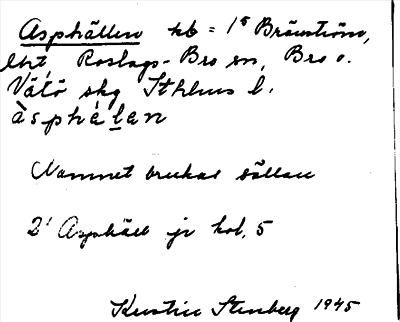 Asphällen hb = 1⁵ Brånström,
lht, Roslags-Bro sn, Bro o.
Vätö skg Sthlms l.
àsphä́lan
Namnet brukas sällan
2' Asphäll jr kol. 5
Kerstin Stenberg 1945